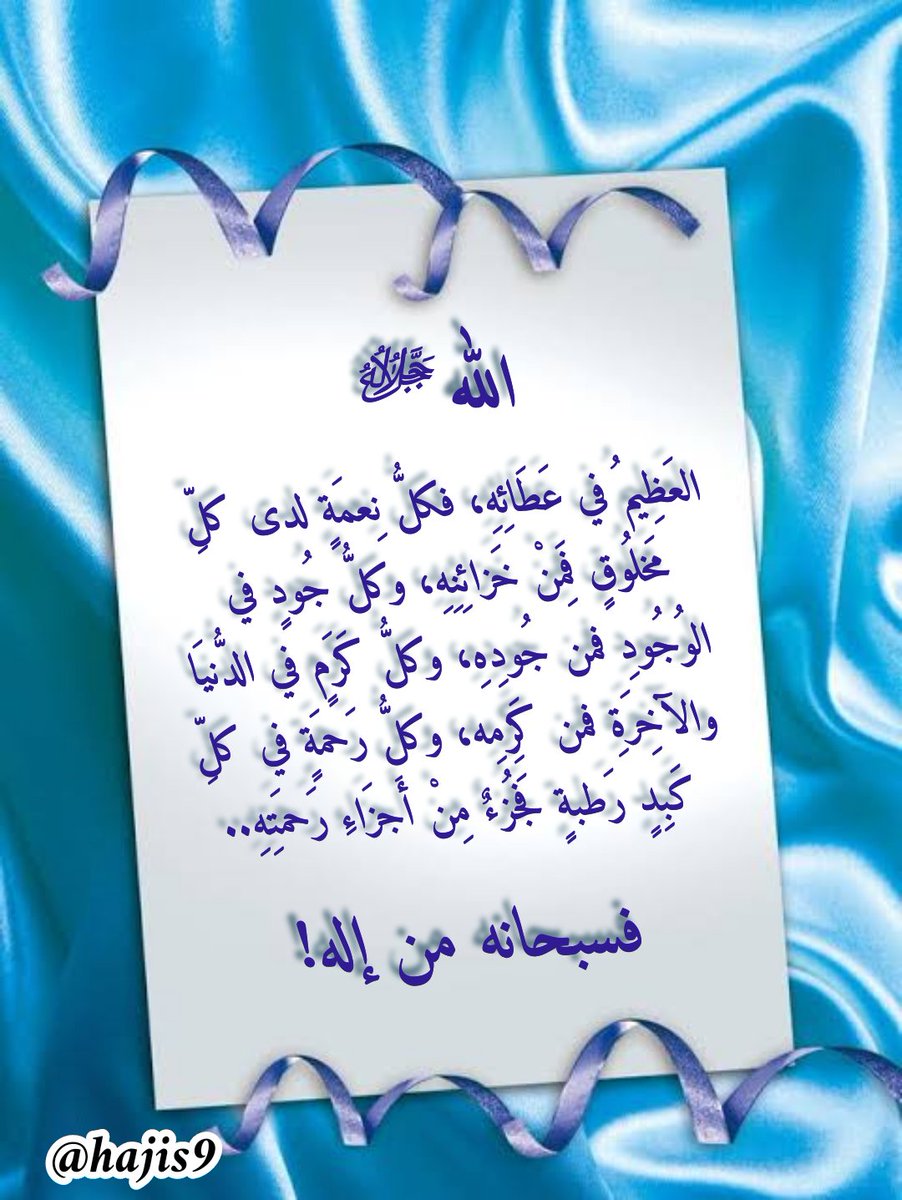 الله ﷻ
العَظِيمُ في عَطَائِهِ، فكلُّ نِعمَةٍ لدى كلِّ
مَخلُوقٍ فَمِنْ خَزائِنِهِ، وكلُّ جُودٍ في
الوُجُودِ فمن جُودِهِ، وكلُّ كَرَمٍ في الدُّنيَا
والآخِرَةِ فمن كَرَمِه، وكلُّ رَحمَةٍ في كلِّ
كَبِدٍ رَطبةٍ فَجُزءٌ مِنْ أَجزَاءِ رَحمَتِهِ..
فسبحانه من إله!
@hajis9